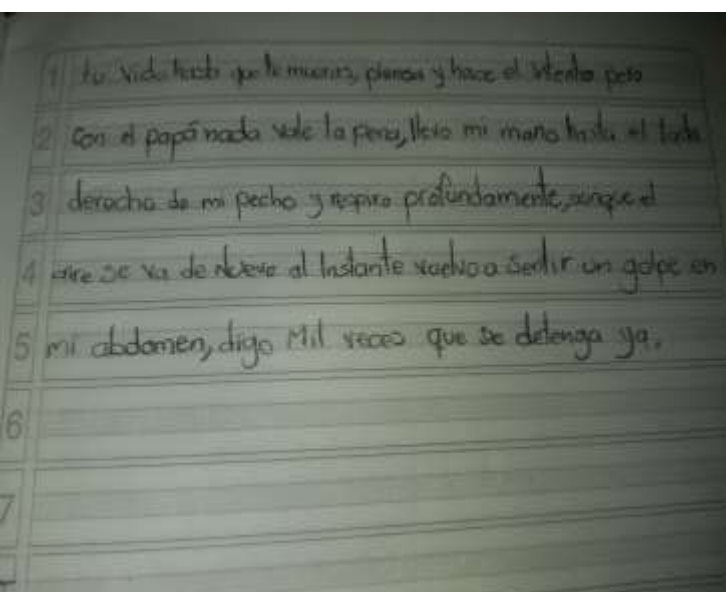 1 tu vida hasta que te mueras, planea y hace el intento pero
2 con el papá nada vale la pena, llevo mi mano hasta el lado
3 derecho de mi pecho y respiro profundamente, aunque el
4 aire se va de nuevo al instante vuelvo a sentir un golpe en
5 mi abdomen, digo mil veces que se detenga ya.
6
7